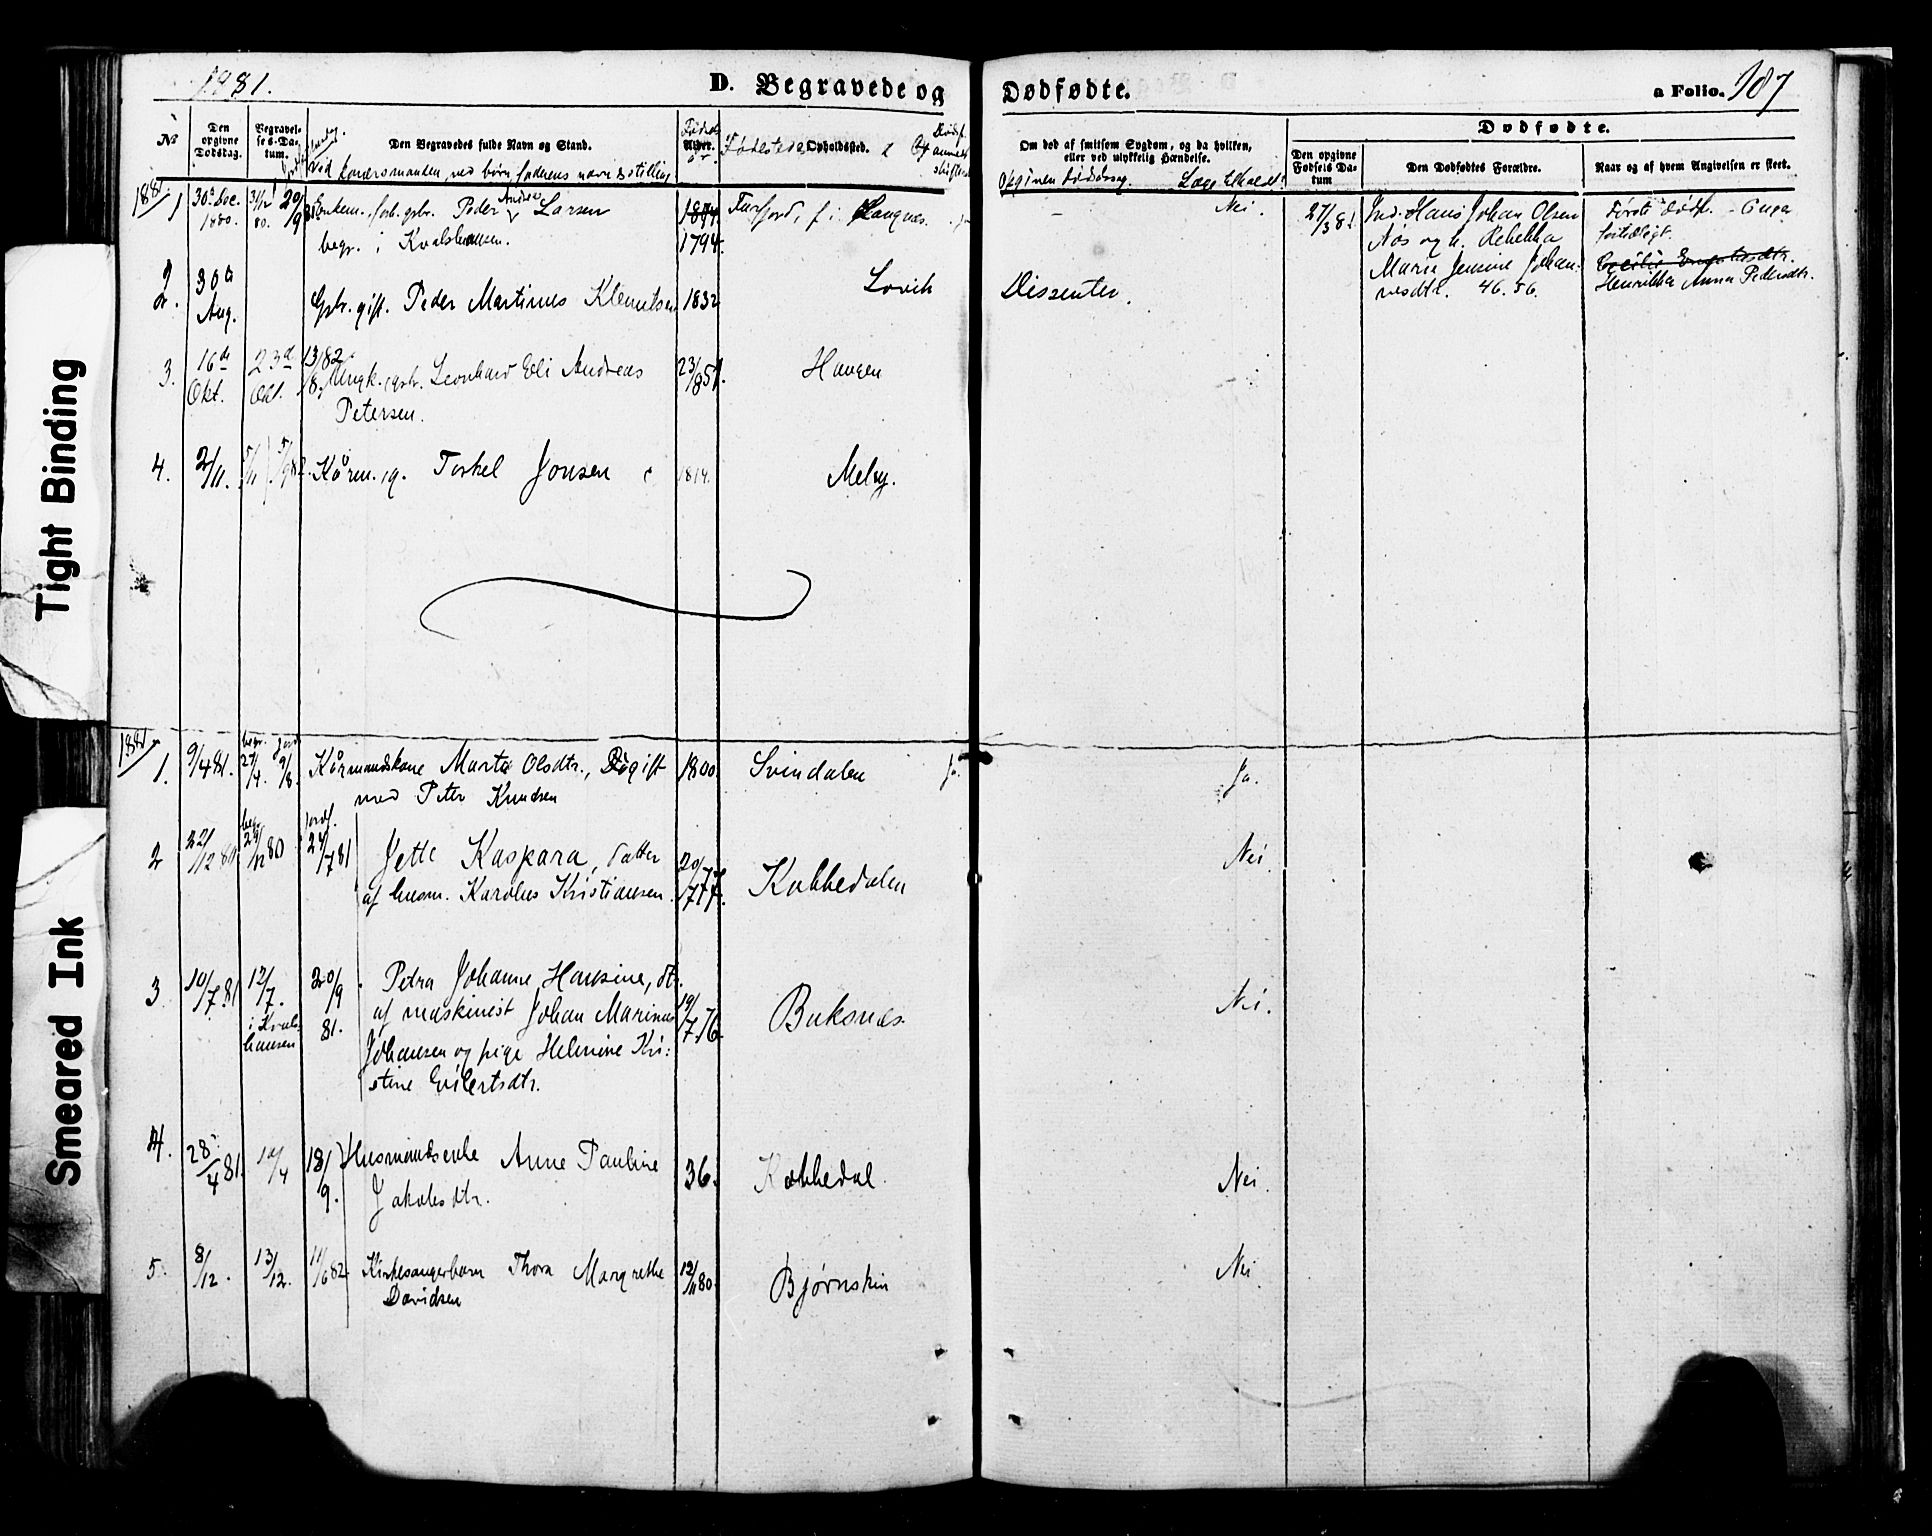 1881.
D. Begravede og
Dødfødte.
a Folio. 187
No
Den opgivne Dødsdag.
Begravelses-Datum.
Den Begravedes fulde Navn og Stand.
Ved koner manden, ved børn faderens navn & stilling
Fødselsår
Alder.
Fødested
Opholdssted.
Om død af smitsom Sygdom, og da hvilken, eller ved ulykkelig Hændelse.
Opgiven dødsårsag.
Læge tilkaldt?
Dødfødte.
Den opgivne Fødsels Datum
Den Dødfødtes Forældre.
Naar og af hvem Angivelsen er skeet.
1881
1
30d Dec. 1880.
31/12 80.
20/9 81
Enkem., forh. gbr. Peder Andreas Larsen
begr. i Kvalshausen.
1794.
Fuxfjord, f. i Langnes.
Nei.
27/3 81
Ind. Hans Johan Olsen
Nøs og h. Rebekka
Marie Jensine Johan-
nesdtr. 46. 56.
Første dødf.
Henrikka Anna Pedersdtr.
2.
30d Aug.
Gbr. gift. Peder Martinus Klemetsen
1832
Lovik
Dissenter.
3.
16de Okt.
23d Okt.
13/8 82
Ungk. gbr. Leonhard Eli Andreas
Petersen.
23/ 851.
Haugen
4.
2/11.
5/11
5/9 82.
Kårm. g. Torkel Jonsen
1814.
Melby.
1881
1.
9/4 81.
begr. 27/4.
jordf. 9/8.
Kårmandskone Marta Olsdtr., gift
med Peter Knudsen
1800.
Svindalen
ja.
Ja.
2
22/12 80
begr. 29/12 80
jordf. 24/7 81
Jette Kaspara, datter
af husm. Karolus Kristiansen.
20/ 77.
Kobbedalen
Nei.
3
10/7 81
12/7. i Kvals-
hausen
20/9 81.
Petra Johanne Hansine, dtr.
af maskinist Johan Marinus
Johansen og pige Helmine Kri-
stine Eilertsdtr.
19/7 76.
Buksnes.
Nei.
4.
28/4 81.
18/9.
Husmandsenke Anne Pauline
Jakobsdtr.
36.
Kobbedal.
Nei.
5.
8/12.
13/12.
11/6 82.
Kirkesangerbarn Thora Margrethe
Davidsen
12/11 80.
Bjørnskin
Nei
Tight Binding
Smeared Ink